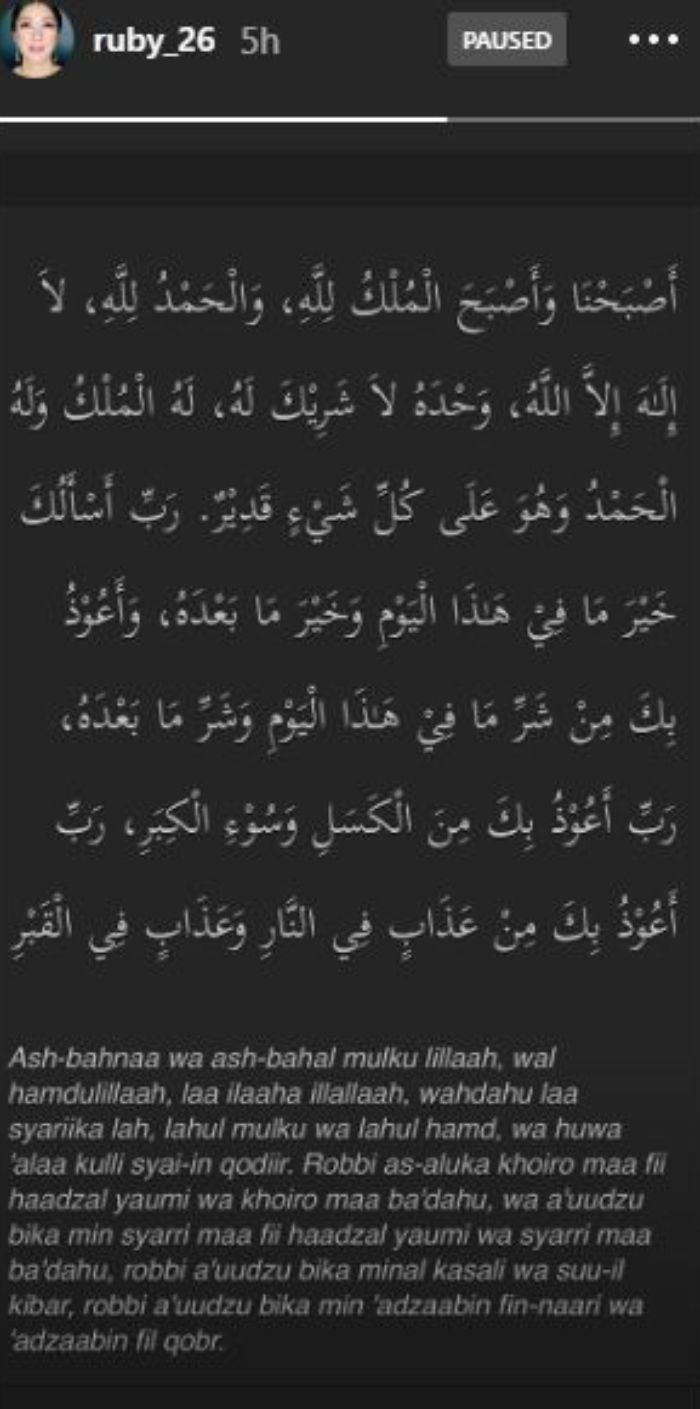 ruby_26 5h PAUSED
أَصْبَحْنَا وَأَصْبَحَ الْمُلْكُ لِلَّهِ، وَالْحَمْدُ لِلَّهِ، لاَ
إِلَـٰهَ إِلاَّ اللَّهُ، وَحْدَهُ لاَ شَرِيْكَ لَهُ، لَهُ الْمُلْكُ وَلَهُ
الْحَمْدُ وَهُوَ عَلَى كُلِّ شَيْءٍ قَدِيْرٌ. رَبِّ أَسْأَلُكَ
خَيْرَ مَا فِيْ هَـٰذَا الْيَوْمِ وَخَيْرَ مَا بَعْدَهُ، وَأَعُوْذُ
بِكَ مِنْ شَرِّ مَا فِيْ هَـٰذَا الْيَوْمِ وَشَرِّ مَا بَعْدَهُ،
رَبِّ أَعُوْذُ بِكَ مِنَ الْكَسَلِ وَسُوْءِ الْكِبَرِ، رَبِّ
أَعُوْذُ بِكَ مِنْ عَذَابٍ فِي النَّارِ وَعَذَابٍ فِي الْقَبْرِ
Ash-bahnaa wa ash-bahal mulku lillaah, wal
hamdulillaah, laa ilaaha illallaah, wahdahu laa
syariika lah, lahul mulku wa lahul hamd, wa huwa
'alaa kulli syai-in qodiir. Robbi as-aluka khoiro maa fii
haadzal yaumi wa khoiro maa ba'dahu, wa a'uudzu
bika min syarri maa fii haadzal yaumi wa syarri maa
ba'dahu, robbi a'uudzu bika minal kasali wa suu-il
kibar, robbi a'uudzu bika min 'adzaabin fin-naari wa
'adzaabin fil qobr.